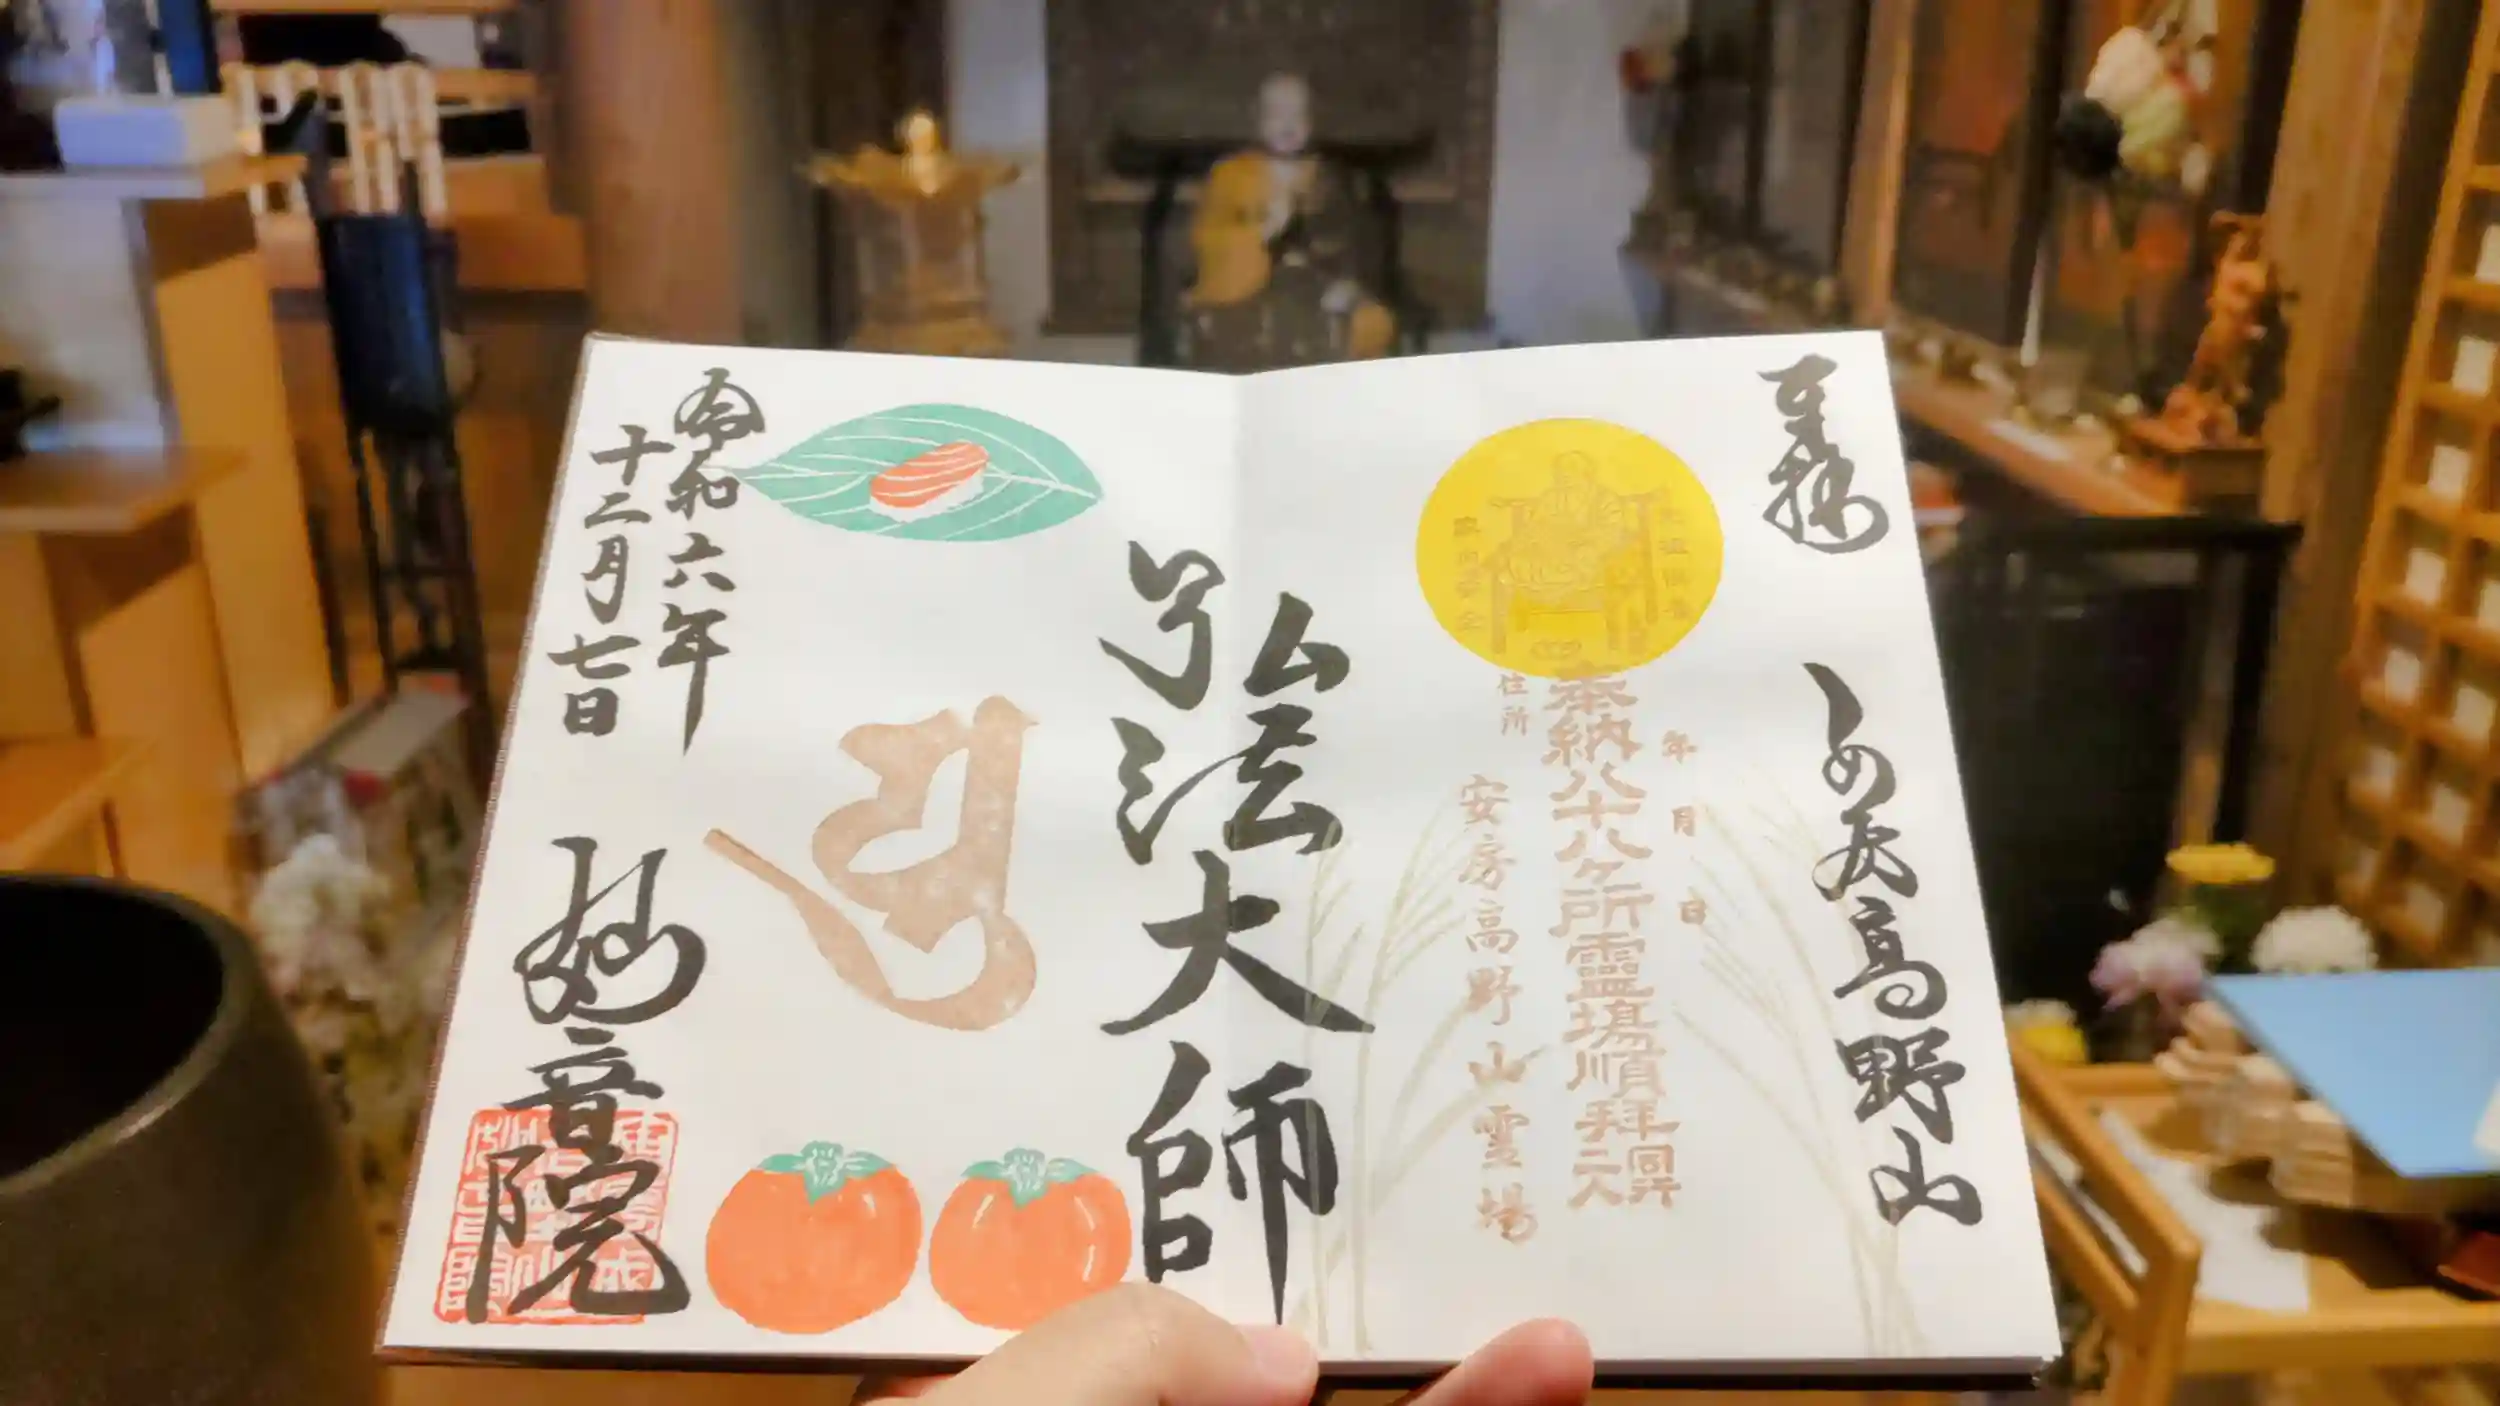 奉拝
あわ高野山
年 月 日
奉納八十八ヶ所霊場順拝同行二人
住所
安房高野山霊場
家内安全
弘法大師
令和六年
十二月七日
妙音院